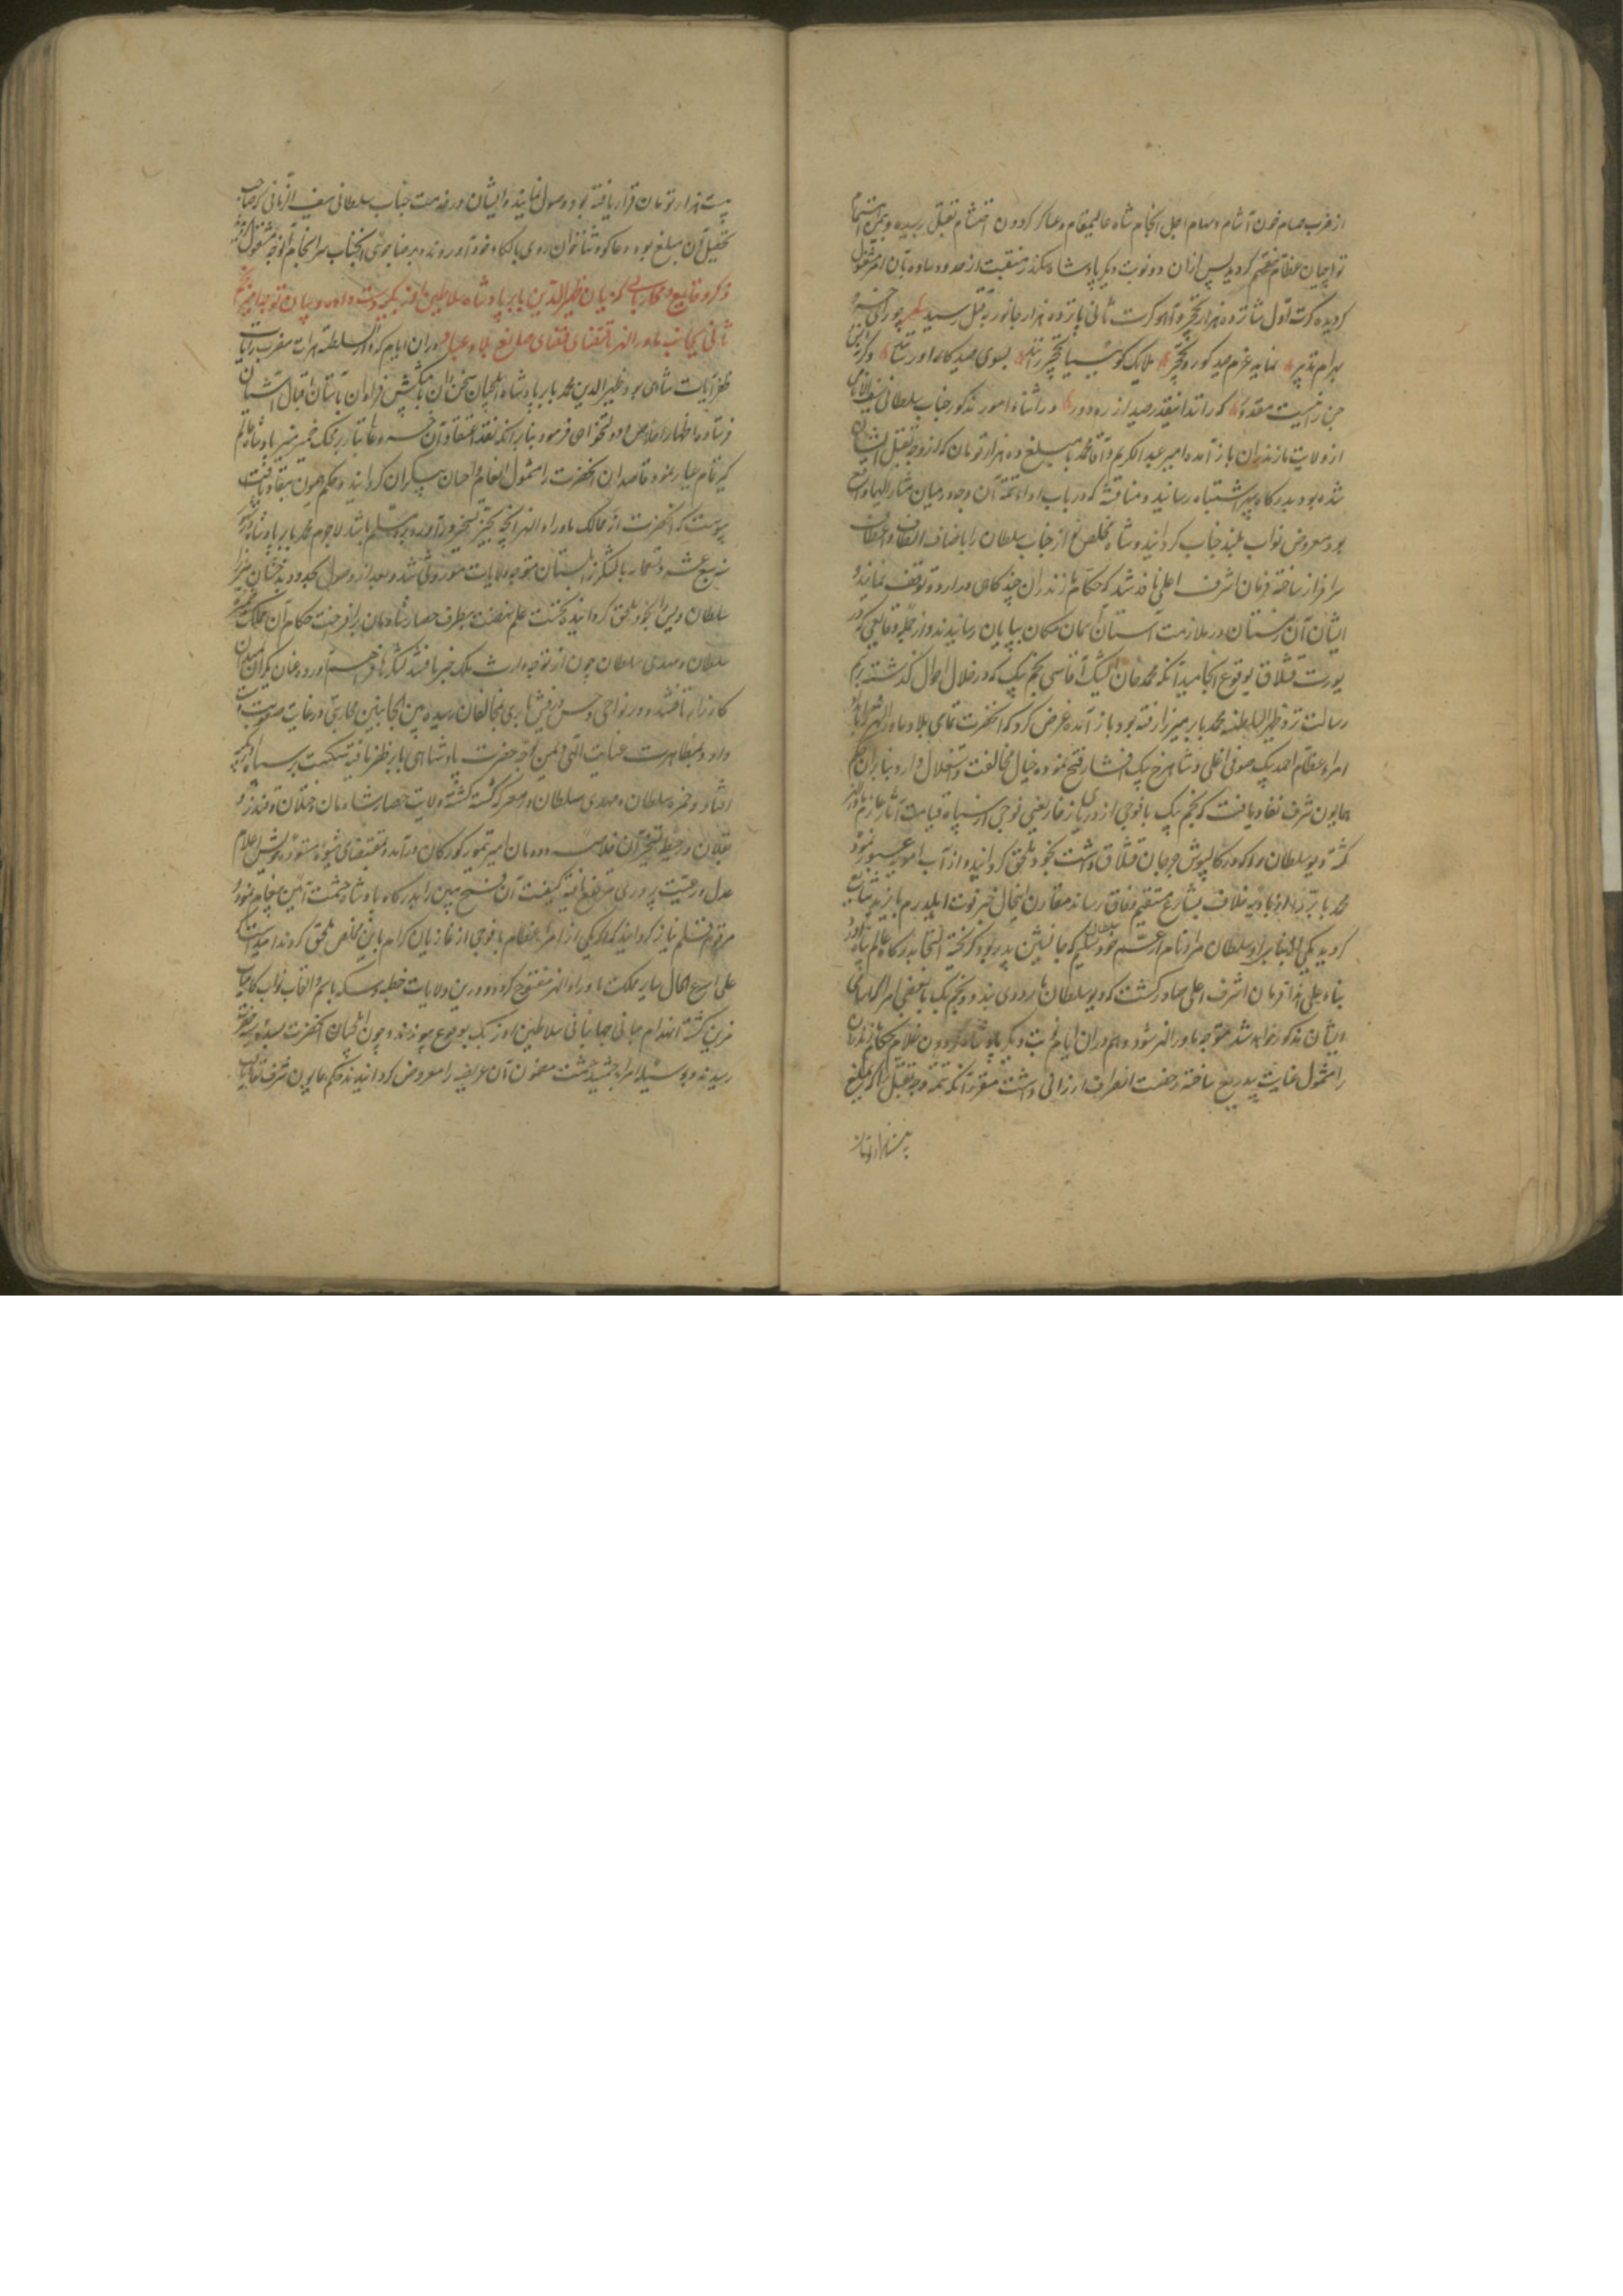 از ضرب حسام خون آشام و سهام اجل انجام شاه عالیمقام و عساکر گردون احتشام بقتل رسیده و بیمن اهتمام
تواچیان عظام منقسم گردید پس از آن دو نوبت دیگر پادشاه سکندر منقبت در حدود ساوه بآن امر مشغول
گردیده کرت اول شانزده هزار نخچیر و آهو کرت ثانی یازده هزار جانور بقتل رسید چو رای خسرو
بهرام تدبیر نماید عزم صید گور و نخچیر ملایک گوسیا نخچیر رانند بسوی صیدگاه او شتابند
چنان رفعت که راند اینقدر صید از ره دور در اثناء امور مذکور جناب سلطانی سیف الانامی
از ولایت مازندران باز آمده امیر عبدالکریم و آقا محمد با مبلغ ده هزار تومان که از وجه تقبل ایشان
شده بود بدرگاه سپهر اشتباه رسانید و مناقشهٔ که در باب اداء تتمه آن وجه در میان مشار الیهما واقع
بود معروض نواب بلند جناب گردانید و شاه مخلص نواز جناب سلطان را باصناف الطاف و اعطاف
سرافراز ساخته فرمان اشرف اعلی نافذ شد که حکام مازندران چند گاهی در اردو توقف نمایند و
ایشان آن زمستان در ملازمت آستان آسمان مکان بپایان رسانیدند و از جمله وقایعی که در
یورت قشلاق بوقوع انجامید آنکه محمد جان ایشیک آقاسی نجم بیک که در خلال احوال گذشته برسم
رسالت نزد ظهیر السلطنه محمد بابر میرزا رفته بود باز آمده عرض کرد که آنحضرت تمامی بلاد ماوراء النهر را بامداد
امراء عظام احمد بیک صوفی اغلی و شاهرخ بیک افشار فتح نموده خیال مخالفت و استقلال دارد بنابر آن حکم
همایون شرف نفاد یافت که نجم بیک با فوجی از دریای ذخار یعنی فوجی از سپاه قیامت آثار عازم ماوراء النهر
گشته دیو سلطان روملو که در کالپوش جرجان قشلاق داشت بخود ملحق گرداند و از آب امویه عبور نموده
محمد بابر میرزا را از بادیه خلاف بشارع مستقیم وفاق رساند مقارن اینحال خبر فوت ایلدرم بایزید شایع
گردید یکی از بنایر او سلطان مراد نام از عم خود سلطان سلیم که جانشین پدر بود گریخته التجا بدرگاه عالم پناه آورد
بناء علی هذا فرمان اشرف اعلی صادر گشت که دیو سلطان باردوی پیوندد و نجم بیک با بعضی امرا که اسامی
ایشان مذکور خواهد شد متوجه ماوراء النهر شود و هم در آن ایام نوبت دیگر پادشاه گردون غلام حکام مازندران
را مشمول عنایت بیدریغ ساخته رخصت انصراف ارزانی داشت مقرر آنکه تتمه وجه تقبل را که مبلغ
بیست هزار تومان
بیست هزار تومان قرار یافته بود وصول نمایند و ایشان در خدمت جناب سلطانی سیف الزمانی که صاحب
تحصیل آن مبلغ بود دعاگوی و ثناخوان روی بالکاء خود آوردند و برضا جوئی آنجناب سرانجام آن وجه مشغول گردیدند
ذکر وقایع و محاربات که میان ظهیر الدین بابر پادشاه و سلاطین اوزبکیه دست داده و بیان توجه امیر نجم
ثانی بجانب ماوراء النهر باقتضای قضای صانع بلاد و عباد در آن ایام که دار السلطنه هرات مضرب رایات
ظفر آیات شاهی بود ظهیر الدین محمد بابر پادشاه ایلچیان سخن دان با پیشکش فراوان بآستان اقبال آشیان
فرستاده اظهار اخلاص و دولتخواهی فرمود بنابر آنکه نقد اعتقاد آن خسرو عالی تبار بر محک ضمیر منیر پادشاه عالم
گیر تمام عیار نمود قاصدان آنحضرت را مشمول انعام و احسان بیکران گردانید و حکم همیون بنفاذ
پیوست که آنحضرت از ممالک ماوراء النهر آنچه بحیز تسخیر درآورد برو مسلم باشد لاجرم محمد بابر پادشاه در شهور
سنه سبع عشر و تسعمائه با لشکر زابلستان متوجه ولایات موروثی شد و بعد از وصول بحدود بدخشان میرزا
سلطان ویس را بخود ملحق گردانیده نخست علم نهضت بطرف حصار شادمان برافراخت حکام آن مملکت حمزه
سلطان و مهدی سلطان چون از توجه وارث ملک خبر یافتند لشکرها فراهم آورده عنان یکران بمیدان
کارزار تافتند و در نواحی وخش درفش بابری بمخالفان رسیده بین الجانبین محاربتی در غایت صعوبت دست
داد و بمظاهرت عنایت الهی و یمن توجه حضرت پادشاهی بابر ظفر یافته شکست بر سپاه اوزبکیه
افتاد و حمزه سلطان و مهدی سلطان در معرکه کشته گشته ولایت حصار شادمان و ختلان و قندز و
بغلان در حیطهٔ تسخیر آن خلاصه دودمان امیر تیمور گورکان درآمد و بمقتضای شیوه ستوده خویش اعلام
عدل و رعیت پروری مرتفع یافته کیفیت آن فتح مبین را بدرگاه پادشاه حشمت آئین پیغام نمود و
مرقوم قلم نیاز گردانید که اگر یکی از امراء عظام با فوجی از غازیان کرام باین مخلص ملحق گردند امید است که
علی اسرع الحال سایر مملکت ماوراء النهر مفتوح گردد و در این ولایات خطبه و سکه باسم و القاب نواب کامیاب
مزین گشته انهدام مبانی جهانبانی سلاطین اوزبک بوقوع پیوندد و چون ایلچیان آنحضرت بسده سنیه
رسیدند و بوسیلهٔ امراء جمشید حشمت مضمون آن عریضه را معروض گردانیدند حکم همایون شرف نفاذ یافت